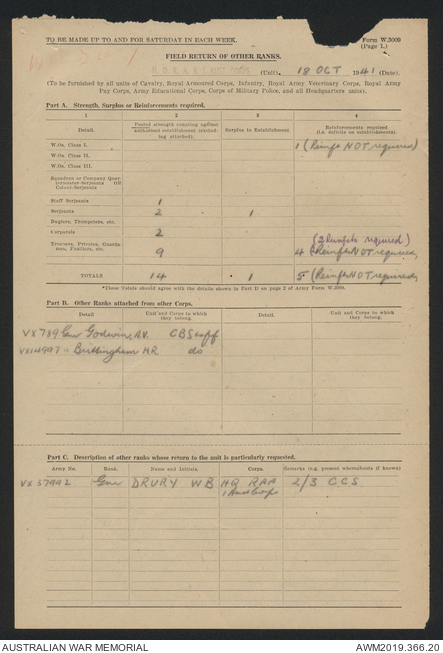 TO BE MADE UP TO AND FOR SATURDAY IN EACH WEEK.
Form W.3009
(Page 1.)
FIELD RETURN OF OTHER RANKS.
(Unit), 18 OCT 1941 (Date).
(To be furnished by all units of Cavalry, Royal Armoured Corps, Infantry, Royal Army Veterinary Corps, Royal Army
Pay Corps, Army Educational Corps, Corps of Military Police, and all Headquarters units).
Part A. Strength, Surplus or Reinforcements required.
1 2 3 4
Detail. Posted strength counting against authorised establishment (excluding attached). Surplus to Establishment Reinforcements required (i.e. deficits on establishments).
W.Os. Class I. 1 (Reinfs NOT required)
W.Os. Class II.
W.Os. Class III.
Squadron or Company Quartermaster-Serjeants OR Colour-Serjeants
Staff Serjeants 1
Serjeants 2 1
Buglers, Trumpeters, etc.
Corporals 2
(3 Reinfcts required)
Troopers, Privates, Guardsmen, Fusiliers, etc. 9 4 (Reinfs NOT required)
TOTALS 14 1 5 (Reinfs NOT required)
*These Totals should agree with the details shown in Part D on page 2 of Army Form W.3009.
Part B. Other Ranks attached from other Corps.
Detail Unit and Corps to which they belong. Detail. Unit and Corps to which they belong.
VX789 Gnr Godwin, A.V.
VX14997 " Buttingham H.R. do
Part C. Description of other ranks whose return to the unit is particularly requested.
Army No. Rank. Name and Initials. Corps. Remarks (e.g. present whereabouts if known)
VX 37992 Gnr DRURY WB HQ RAA 2/3 CCS
1 Aust Corps
AUSTRALIAN WAR MEMORIAL AWM2019.366.20